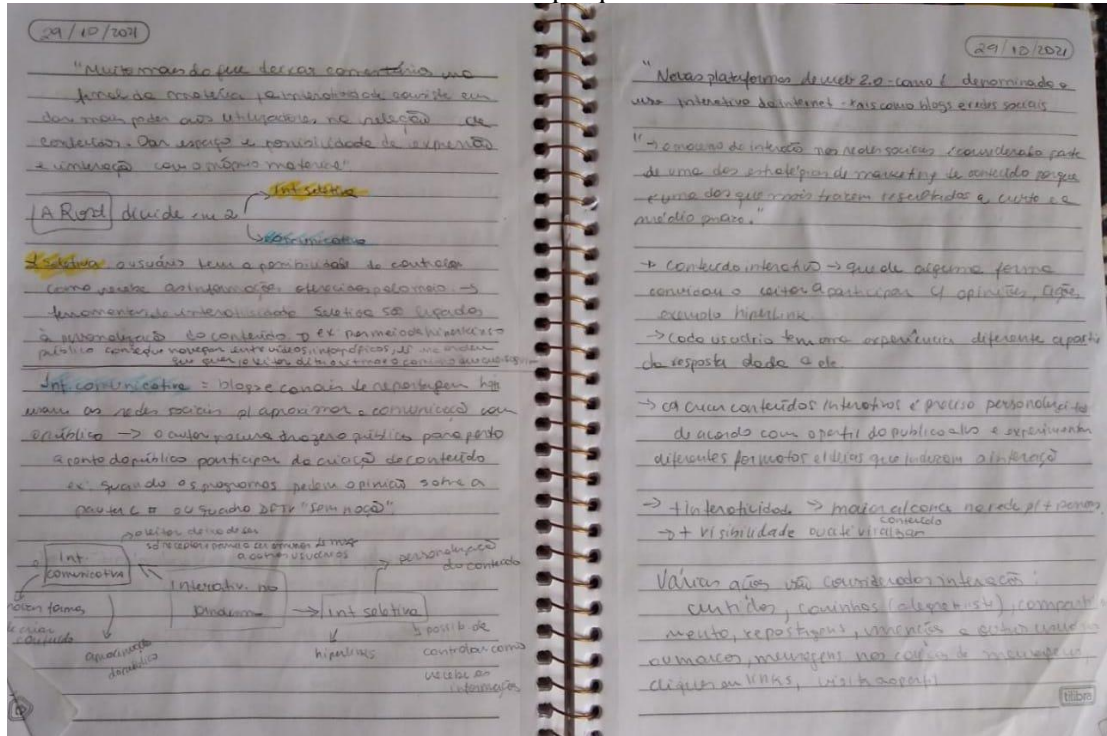 29/10/2021
"Muito mais do que deixar comentários no
final da matéria, a interatividade consiste em
dar mais poder aos utilizadores, na relação de
conteúdos. Dar espaço e possibilidade de expressão
e interação com a própria matéria"
Int seletiva
A Rost divide em 2
comunicativa
Seletiva o usuário tem a possibilidade de controlar
como recebe as informações oferecidas pelo meio →
ferramentas de interatividade seletiva são ligados
à personalização do conteúdo ex por meio de hipertexto
público consegue navegar entre vídeos, infográficos,
que quer, o leitor dita o ritmo
Int. comunicativa = blogs e canais de reportagem hoje
usam as redes sociais p/ aproximar a comunicação com
o público → o autor procura trazer o público para perto
a ponto do público participar da criação de conteúdo
ex: quando os programas pedem opinião sobre a
pauta ou quadro DFTV "sem noção"
o leitor deixa de ser
só receptor passa a ser emissor de msg
a outros usuários
Int
comunicativa
Interativ. no
→ Int seletiva
personalização
do conteúdo
formas
de criar
conteúdo
aproximação
do público
hiperlinks
possib de
controlar como
recebe as
informações
29/10/2021
"Novas plataformas de web 2.0 - como é denominado o
uso interativo da internet - tais como blogs e redes sociais
"→ o máximo de interação nas redes sociais é considerado parte
de uma das estratégias de marketing de conteúdo porque
é uma das que mais trazem resultados a curto e a
médio prazo."
+ conteúdo interativo → que de alguma forma
convidam o leitor a participar c/ opiniões, ação,
exemplo hiperlink
→ Cada usuário tem uma experiência diferente a partir
da resposta dada a ele
→ ca criar conteúdos interativos é preciso personalizá-los
de acordo com o perfil do público alvo e experimentar
diferentes formatos e ideias que induzam a interação
→ + Interatividade → maior alcance na rede p/ + pessoas
→ + visibilidade conteúdo ou até viralizar
Várias ações são consideradas interação:
curtidas, carinhas (alegre triste), comparti
mento, repostagens, menções a outros usuários
ou marcas, mensagens nas caixas de mensagens,
cliques em links, visita a perfil
tilibra